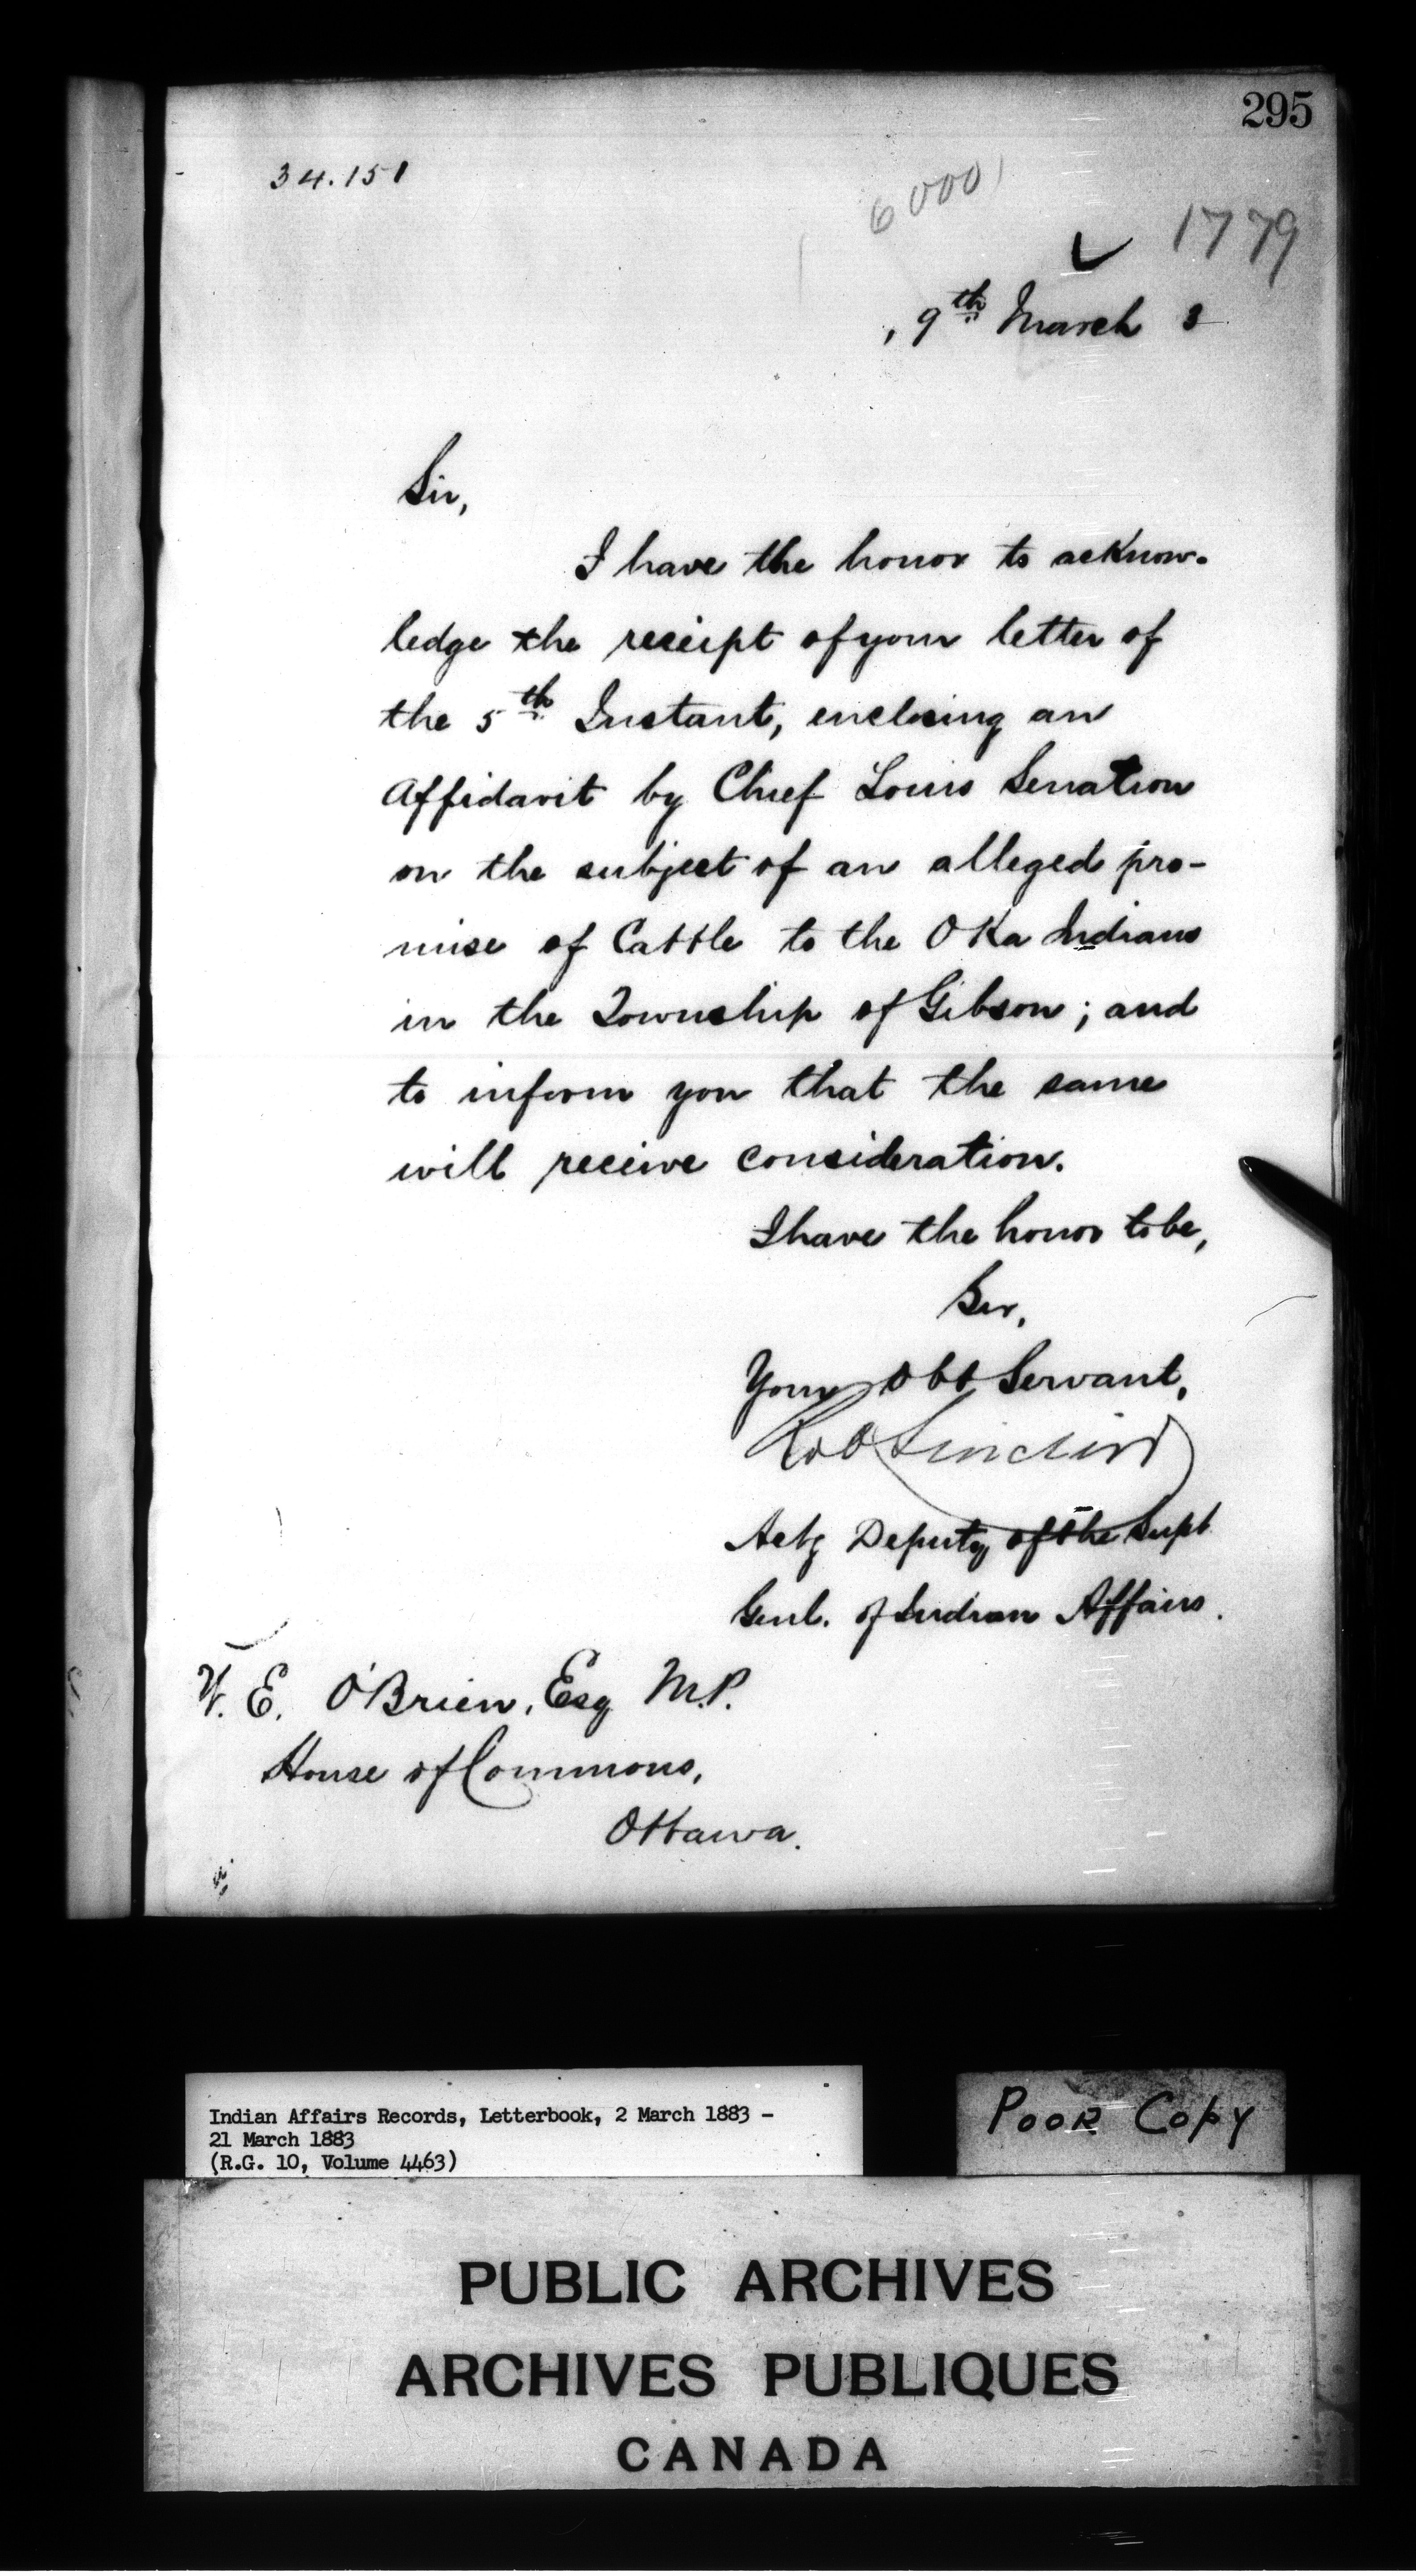 295
34.151
6000
1779
9th March 3
Sir,
I have the honor to acknow-
ledge the receipt of your letter of
the 5th Instant, enclosing an
Affidavit by Chief Louis Senation
on the subject of an alleged pro-
mise of Cattle to the Oka Indians
in the Township of Gibson; and
to inform you that the same
will receive consideration.
I have the honor to be,
Sir,
Your Obt Servant,
Rob Sinclair
Actg Deputy of the Supt
Genl. of Indian Affairs.
W. E. O'Brien, Esq M.P.
House of Commons,
Ottawa.
Indian Affairs Records, Letterbook, 2 March 1883 -
21 March 1883
(R.G. 10, Volume 4463)
POOR COPY
PUBLIC ARCHIVES
ARCHIVES PUBLIQUES
CANADA